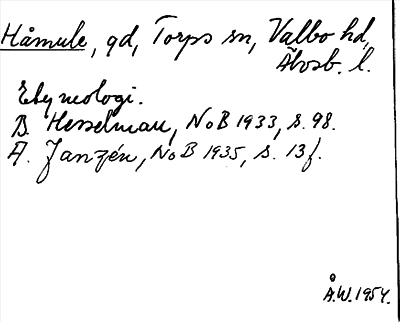 Håmule, gd, Torps sn, Valbo hd,
Älvsb. l.
Etymologi.
B. Hesselman, NoB 1933, s. 98.
A. Janzén, NoB 1935, s. 13f.
Å.W. 1954.